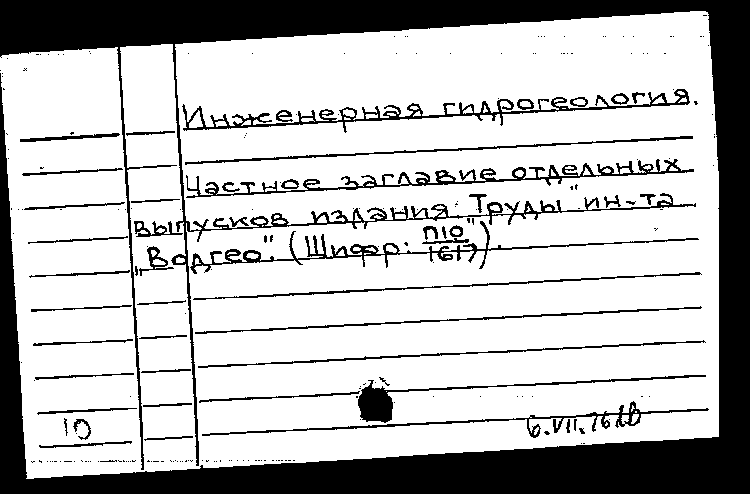 Инженерная гидрогеология.
Частное заглавие отдельных
выпусков издания: Труды "ин-та
„Водгео". (Шифр: П10/1617").
10
6.VII.76